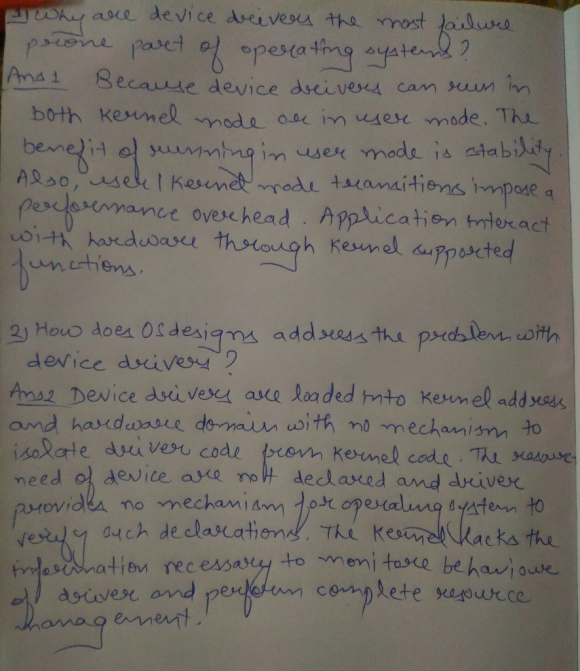 1) Why are device drivers the most failure
prone part of operating systems?
Ans1 Because device drivers can run in
both kernel mode or in user mode. The
benefit of running in user mode is stability.
Also, user / kernel mode transitions impose a
performance overhead. Application interact
with hardware through kernel supported
functions.
2) How does OS designs address the problem with
device drivers?
Ans2 Device drivers are loaded into kernel address
and hardware domain with no mechanism to
isolate driver code from kernel code. The
need of device are not declared and driver
provides no mechanism for operating system to
verify such declarations. The kernel lacks the
information necessary to monitore behaviour
of driver and perform complete resource
management.